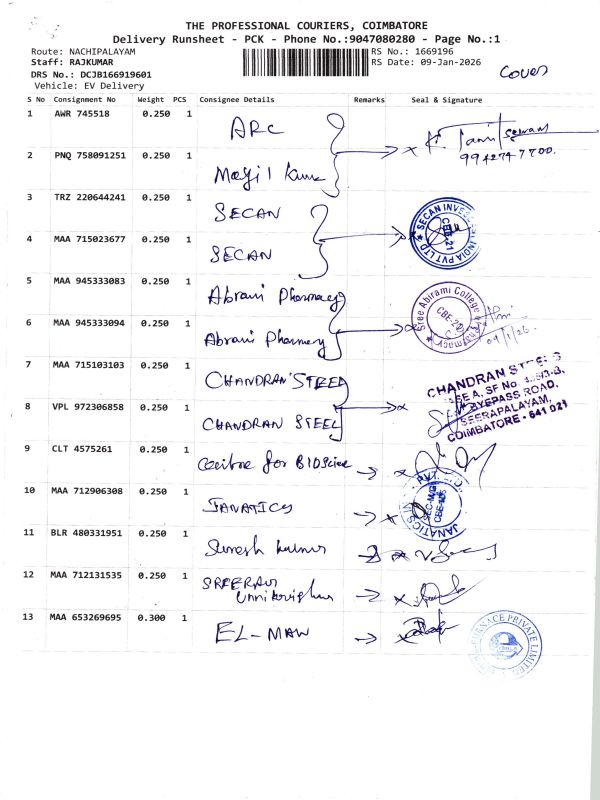 THE PROFESSIONAL COURIERS, COIMBATORE
Delivery Runsheet - PCK - Phone No.:9047080280 - Page No.:1
Route: NACHIPALAYAM RS No.: 1669196
Staff: RAJKUMAR RS Date: 09-Jan-2026
DRS No.: DCJB166919601
Vehicle: EV Delivery
Cover
S No Consignment No Weight PCS Consignee Details Remarks Seal & Signature
1 AWR 745518 0.250 1 ARC
K. Tamil Selvan
9942747700.
2 PNQ 758091251 0.250 1 Magil Kumar
3 TRZ 220644241 0.250 1 SECAN
SECAN INVES INDIA PVT LTD CBE-21
4 MAA 715023677 0.250 1 SECAN
5 MAA 945333083 0.250 1 Abrami Pharmacy
Sree Abirami College Pharmacy CBE-21
09/1/26
6 MAA 945333094 0.250 1 Abrami Pharmacy
7 MAA 715103103 0.250 1 CHANDRAN STEEL
CHANDRAN
SF No
BYEPASS ROAD,
SEERAPALAYAM,
COIMBATORE - 641 021
8 VPL 972306858 0.250 1 CHANDRAN STEEL
9 CLT 4575261 0.250 1 Centre for BIOScience
10 MAA 712906308 0.250 1 JANATICS
JANATICS PVT. LTD.
11 BLR 480331951 0.250 1 Suresh kumar
12 MAA 712131535 0.250 1 SREERAM
Unnikrishnan
13 MAA 653269695 0.300 1 EL-MAN
FURNACE PRIVATE LIMITED